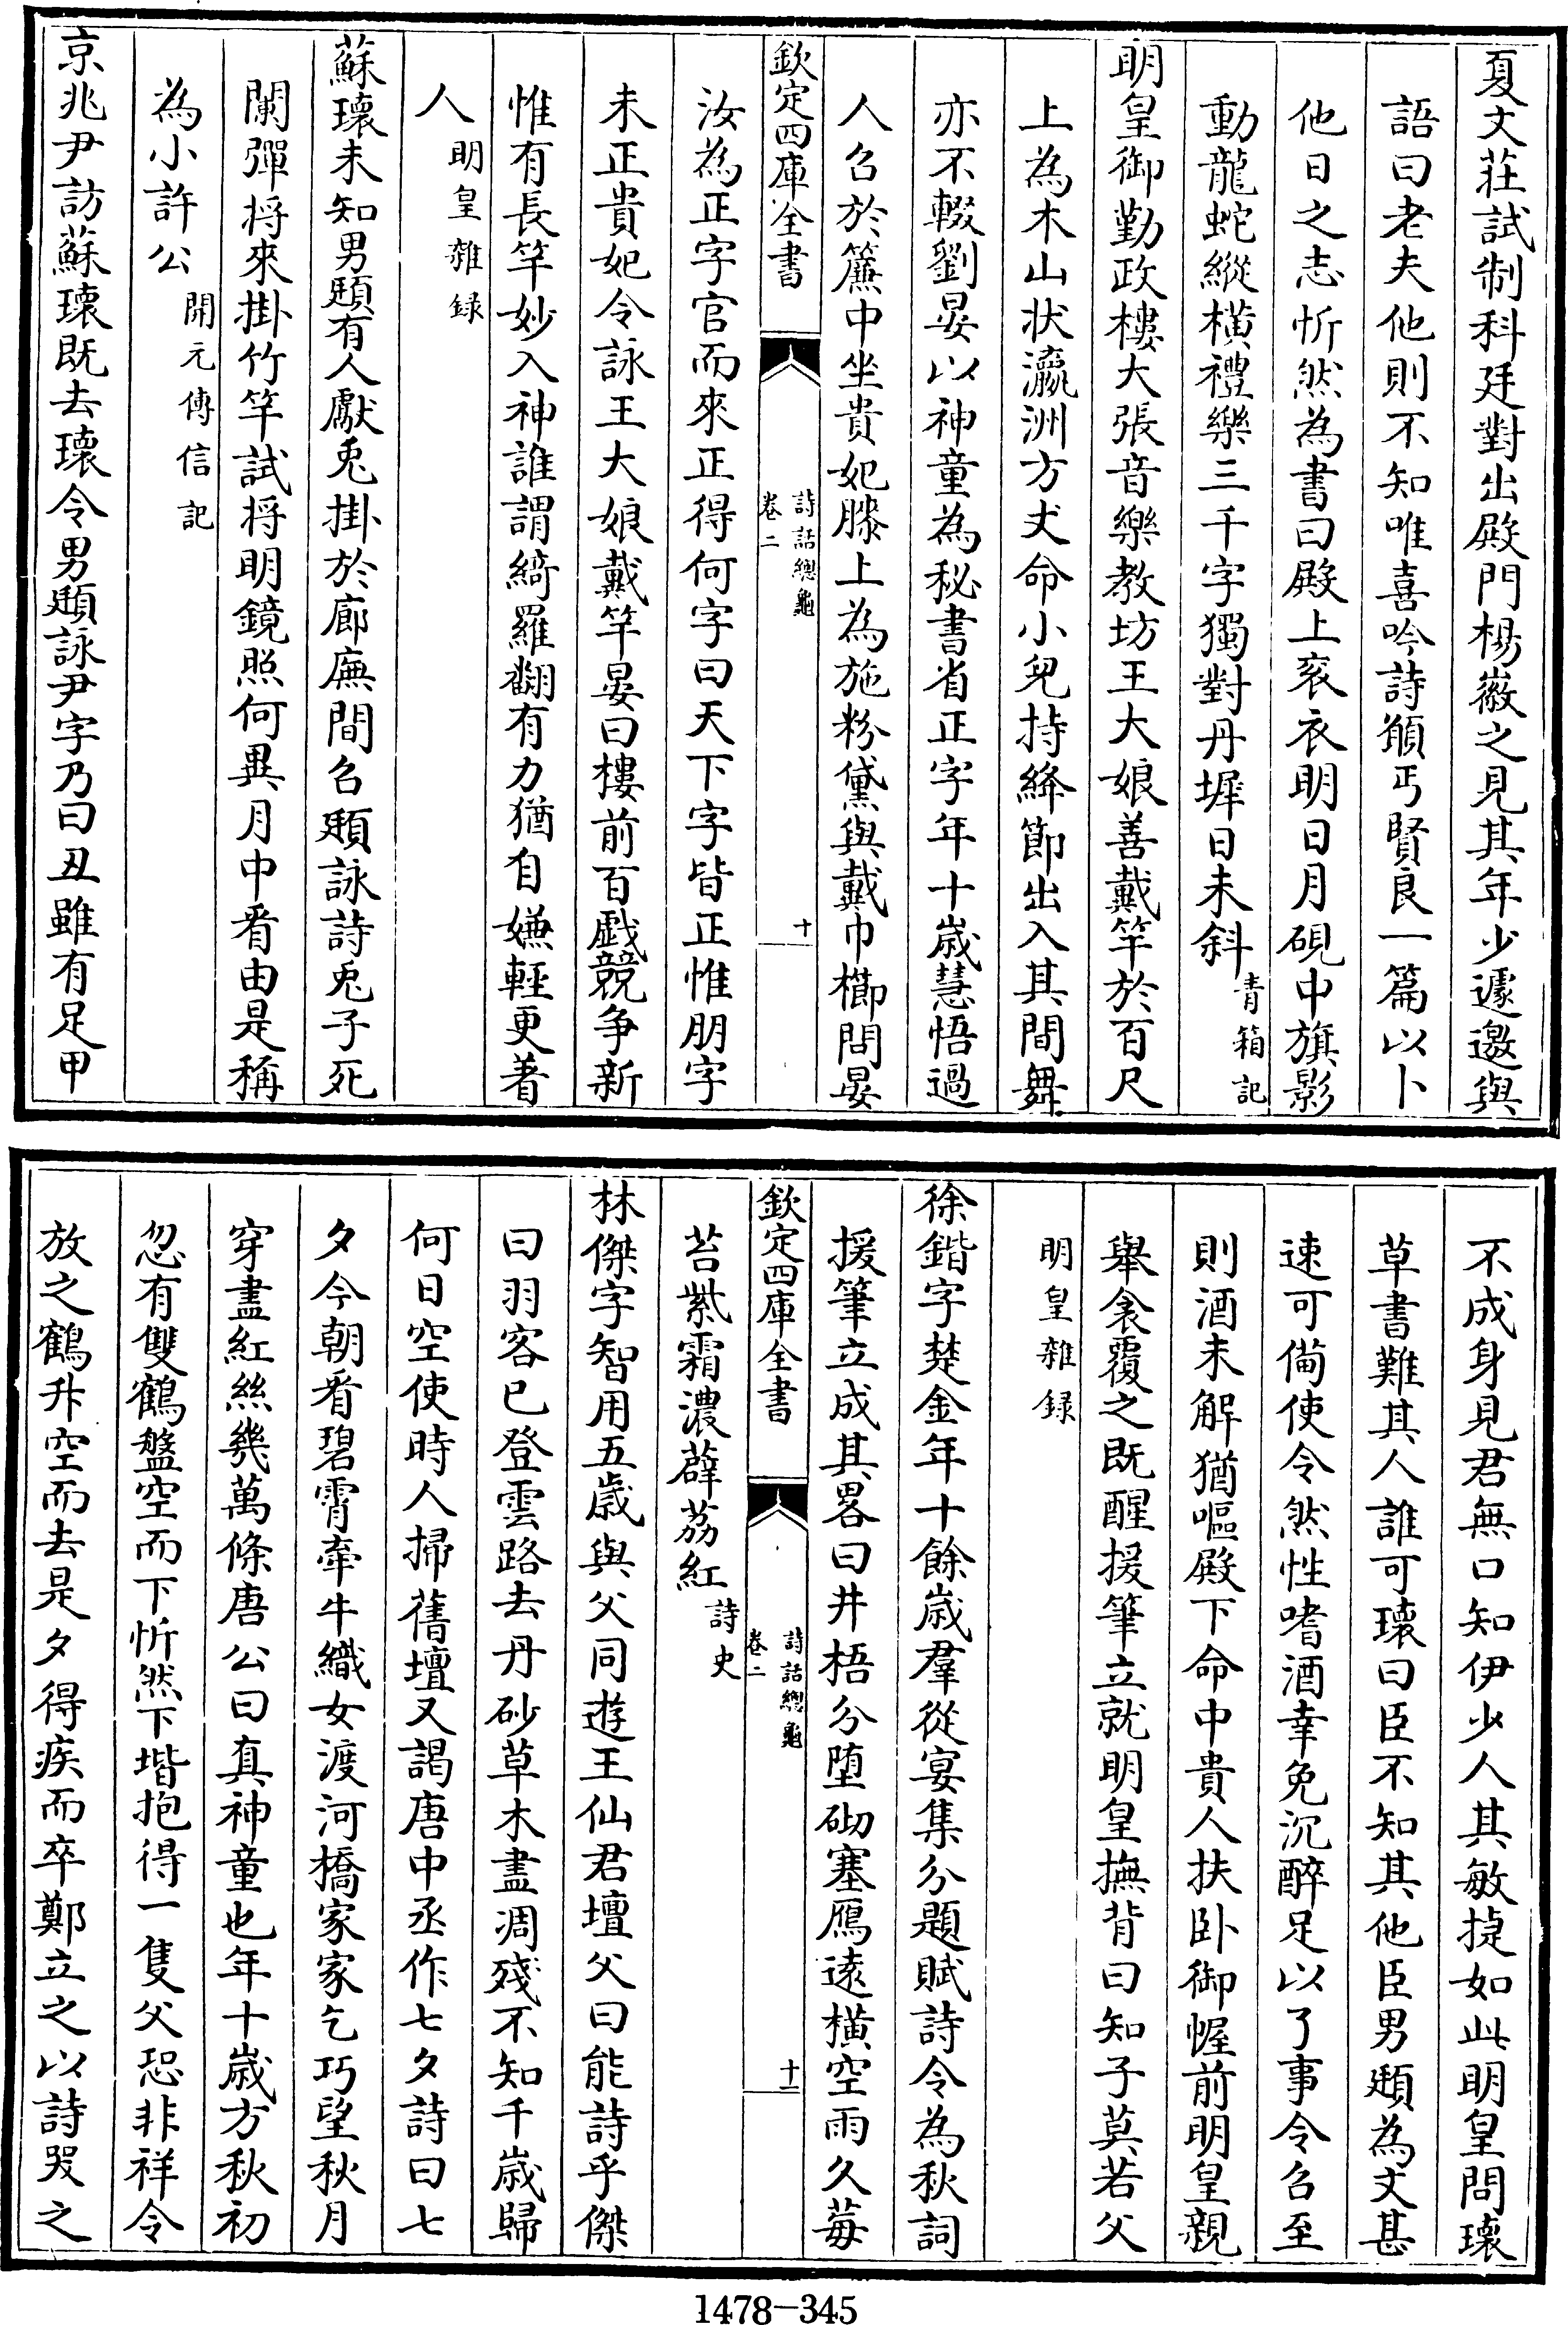 夏文莊試制科廷對出殿門楊徽之見其年少遽邀與
語曰老夫他則不知唯喜吟詩願丐賢良一篇以卜
他日之志忻然為書曰殿上衮衣明日月硯中旗影
動龍蛇縱横禮樂三千字獨對丹墀日未斜青箱記
明皇御勤政樓大張音樂教坊王大娘善戴竿於百尺
上為木山狀瀛洲方丈命小兒持絳節出入其間舞
亦不輟劉晏以神童為秘書省正字年十歳慧悟過
人召於簾中坐貴妃膝上為施粉黛與戴巾櫛問晏
欽定四庫全書
詩話總龜
卷二
十
汝為正字官而來正得何字曰天下字皆正惟朋字
未正貴妃令詠王大娘戴竿晏曰樓前百戯競争新
惟有長竿妙入神誰謂綺羅翻有力猶自嫌輕更着
人明皇雜録
蘇瓌未知男頲有人獻兎掛於廊廡間召頲詠詩兎子死
闌彈将來掛竹竿試将明鏡照何異月中看由是稱
為小許公開元傳信記
京兆尹訪蘇瓌既去瓌令男頲詠尹字乃曰丑雖有足甲
不成身見君無口知伊少人其敏捷如此明皇問瓌
草書難其人誰可瓌曰臣不知其他臣男頲為文甚
速可備使令然性嗜酒幸免沉醉足以了事令召至
則酒未解猶嘔殿下命中貴人扶卧御幄前明皇親
舉衾覆之既醒援筆立就明皇撫背曰知子莫若父
明皇雜録
徐鍇字楚金年十餘歳羣從宴集分題賦詩令為秋詞
援筆立成其畧曰井梧分堕砌塞鴈逺横空雨久莓
欽定四庫全書
詩話總龜
卷二
十一
苔紫霜濃薜荔紅詩史
林傑字智用五歳與父同遊王仙君壇父曰能詩乎傑
曰羽客已登雲路去丹砂草木盡凋殘不知千歳歸
何日空使時人掃舊壇又謁唐中丞作七夕詩曰七
夕今朝看碧霄牽牛織女渡河橋家家乞巧望秋月
穿盡紅絲幾萬條唐公曰真神童也年十歳方秋初
忽有雙鶴盤空而下忻然下堦抱得一隻父恐非祥令
放之鶴升空而去是夕得疾而卒鄭立之以詩哭之
1478-345